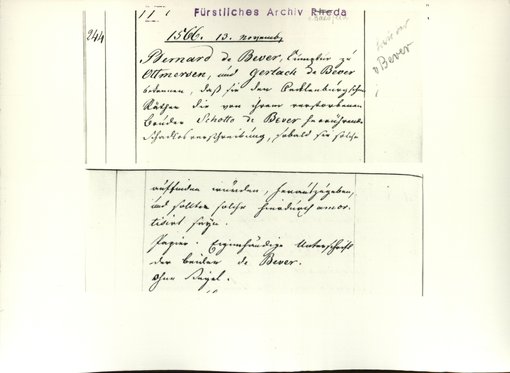 Fürstliches Archiv Rheda
244
1566. 13. November
Bernard de Bever, zu
Ottmersen, und Gerlach de Bever
bekennen, daß sie den Tecklenburgschen
Räthen die von ihrem verstorbenen
Bruder Schotto de Bever herrührende
Schadlosverschreibung, sobald sie solche
auffinden würden, herauszugeben,
und sollte solche hierdurch amor-
tisirt seyn.
Papier. Eigenhändige Unterschrift
der beiden de Bever.
Ohne Siegel.
v Bever